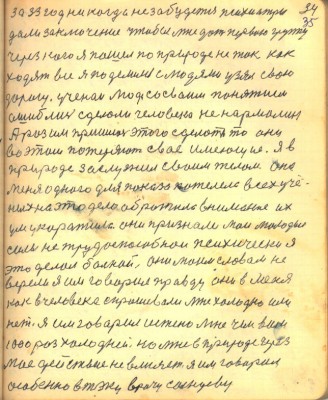 34
35
за 33 года никогда не забудется психиатри
дали заключение чтобы мне дать первою группу
через него я пошел по природе не так как
ходят все я поделился с людями узял свою
дорогу. ученаи люди со своим понятием
ошиблись сделали человека не нармалним
Я розим пришлось этого сделать то они
во этом потеряют своё имеющие. Я в
природе заслужил своим телом. она
меня одного для показа пожелела всех учё-
ных на это дело обротила внимание их
ум укоратила. они признали мои молодые
силы не трудоспособнои психически я
это делал болной, они моим словам не
верели я им говорил правду они в меня
как в человека спрашивали мне холодно или
нет. Я им говорил истено мне чим вам
1000 раз холодней. но мне в природе через
мое действие не влияет я им говорил
особенно в тежи врачу